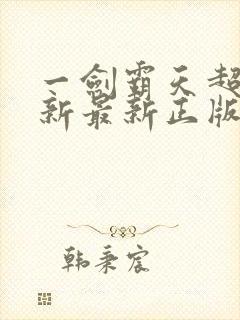 一剑霸天超
新最新正版
韩秉宸